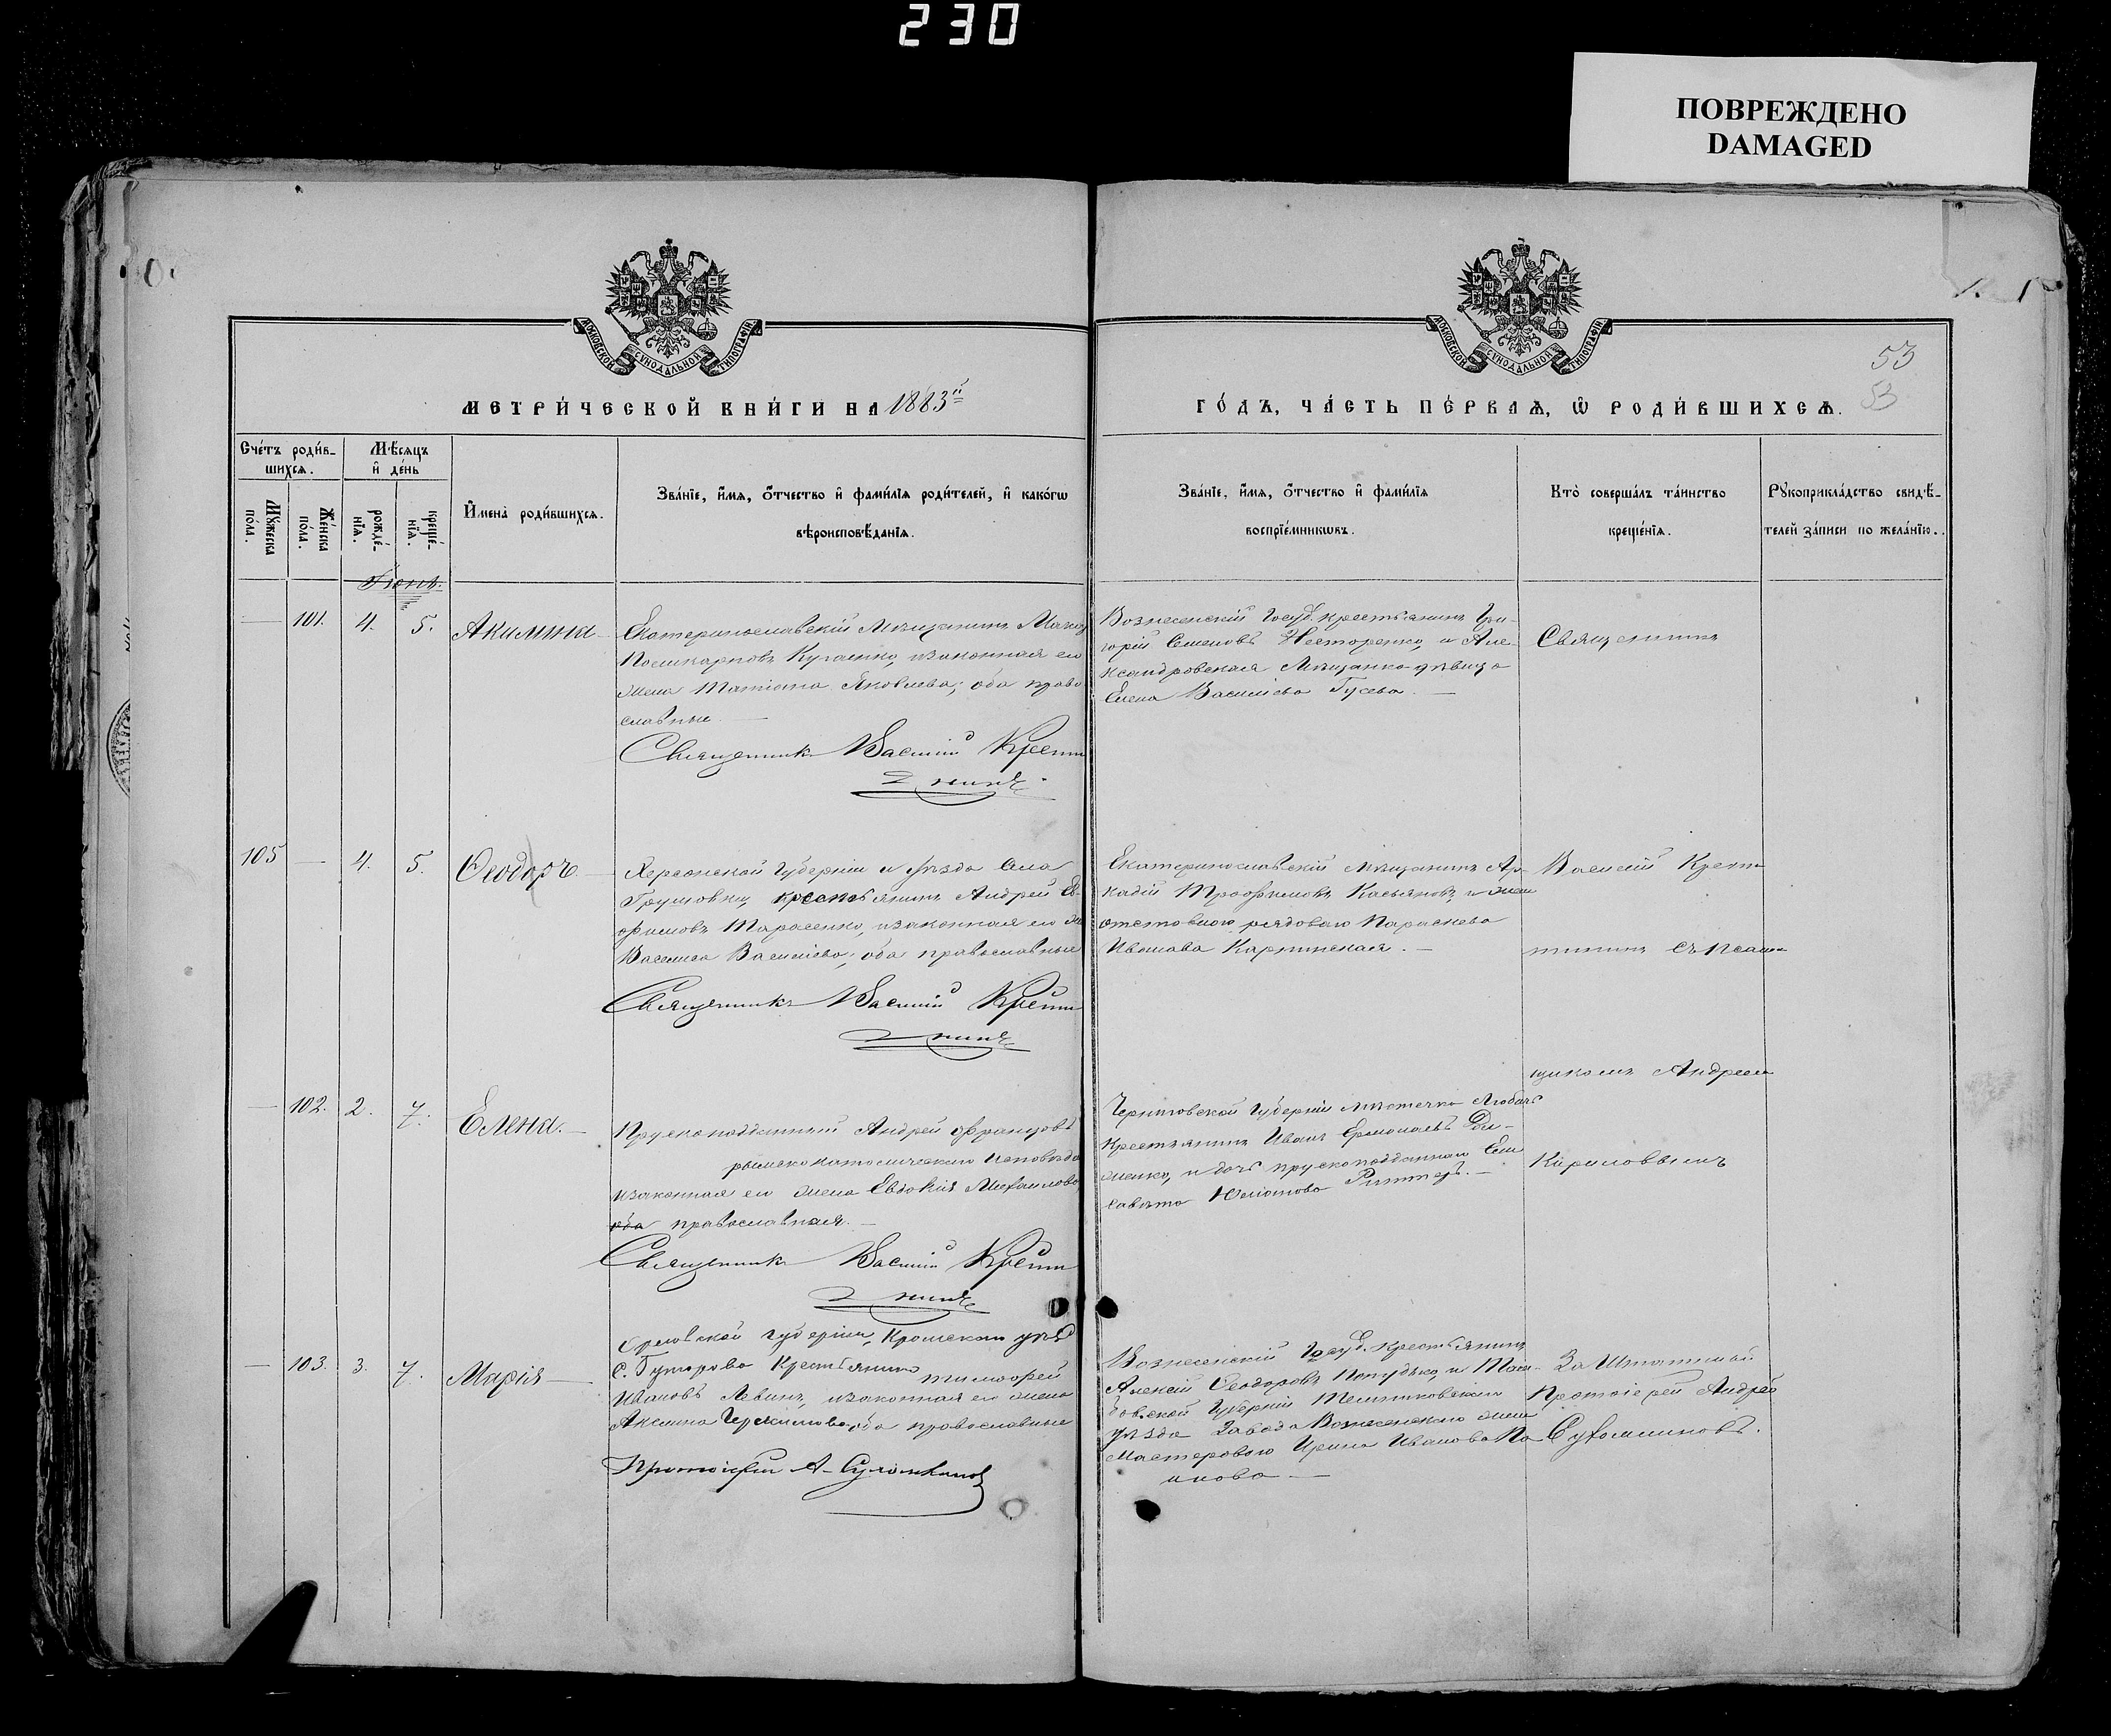 230
ПОВРЕЖДЕНО
DAMAGED
МОСКОВСКОЙ СѴНОДАЛЬНОЙ ТИПОГРАФІИ
МОСКОВСКОЙ СѴНОДАЛЬНОЙ ТИПОГРАФІИ
53
53
МЕТРИ́ЧЕСКОЙ КНИ́ГИ НА 1883й
ГО́ДЪ, ЧА́СТЬ ПЕ́РВАѦ, Ѡ РОДИ́ВШИХСѦ.
Сче́тъ роди́в-
шихсѧ.
Мѣ́сѧцъ
и҆ де́нь
Мꙋ́жеска
по́ла.
Же́нска
по́ла.
рожде́-
нїѧ.
креще́-
нїѧ.
И҆мена̀ роди́вшихсѧ.
Зва́нїе, и҆́мѧ, ѻ҆́тчество и҆ фами́лїѧ роди́телей, и҆ како́гѡ
вѣроисповѣ́данїѧ.
Зва́нїе, и҆́мѧ, ѻ҆́тчество и҆ фами́лїѧ
воспрїе́мникѡвъ.
Кто̀ соверша́лъ та́инство
креще́нїѧ.
Рꙋкоприкла́дство свидѣ́-
телей за́писи по жела́нїю.
Іюнь.
101. 4. 5. Акилина
Екатеринославскій Мѣщанинъ
Поликарповъ Кугаенко, изаконная его
жена Татіана Яковлева; оба право
славные.
Священникъ Василій Крести
нинъ
Вознесенскій Госуд. крестьянинъ Гри-
горій Семеновъ Несторенко, и Але-
ксандровская Мѣщанка-дѣвица
Елена Васильева Гусева.
Священникъ
105 4. 5. Ѳеодоръ.
Херсонской Губерніи и уѣзда Села
Грушовки, крестьянинъ Андрей
Тарасенко, изаконная его
Василиса Васильева; оба православные
Священникъ Василій Крести
нинъ
Екатеринославскій мѣщанинъ Ар-
кадій Трофимовъ Касьяновъ и жена
отставного рядоваго Параскева
Иванова Карпинская.
Василій Крести
нинъ съ Псалом
щикомъ Андреем
Кириловымъ
102. 2. 7. Елена.
Прускоподданный Андрей Францовъ
римскокатолическаго исповѣда
изаконная его жена Евдокія Михаилова,
оба православная.
Священникъ Василій Крести
нинъ
Черниговской Губерніи мѣстечка Любичь
Крестьянинъ Иванъ Ермолаевъ
менко, и дочь прускоподданнаго Ели
савета Юліанова Риттеръ.
103. 3. 7. Марія
Орловской губерніи, Кромскаго уѣзд
с. Гуторово Крестьянинъ Тимофей
Ивановъ Левинъ, изаконная его жена
Аксинья Герасимова, оба православные
Протоіерей А. Сухомлиновъ
Вознесенскій Госуд. Крестьянинъ
Алексій Ѳеодоровъ и Там-
бовской Губерніи Темниковскаго
уѣзда Завода Вознесенскаго жена
Мастероваго Ирина Иванова По
пкова
За Штатный
Протоіерей Андрей
Сухомлиновъ.